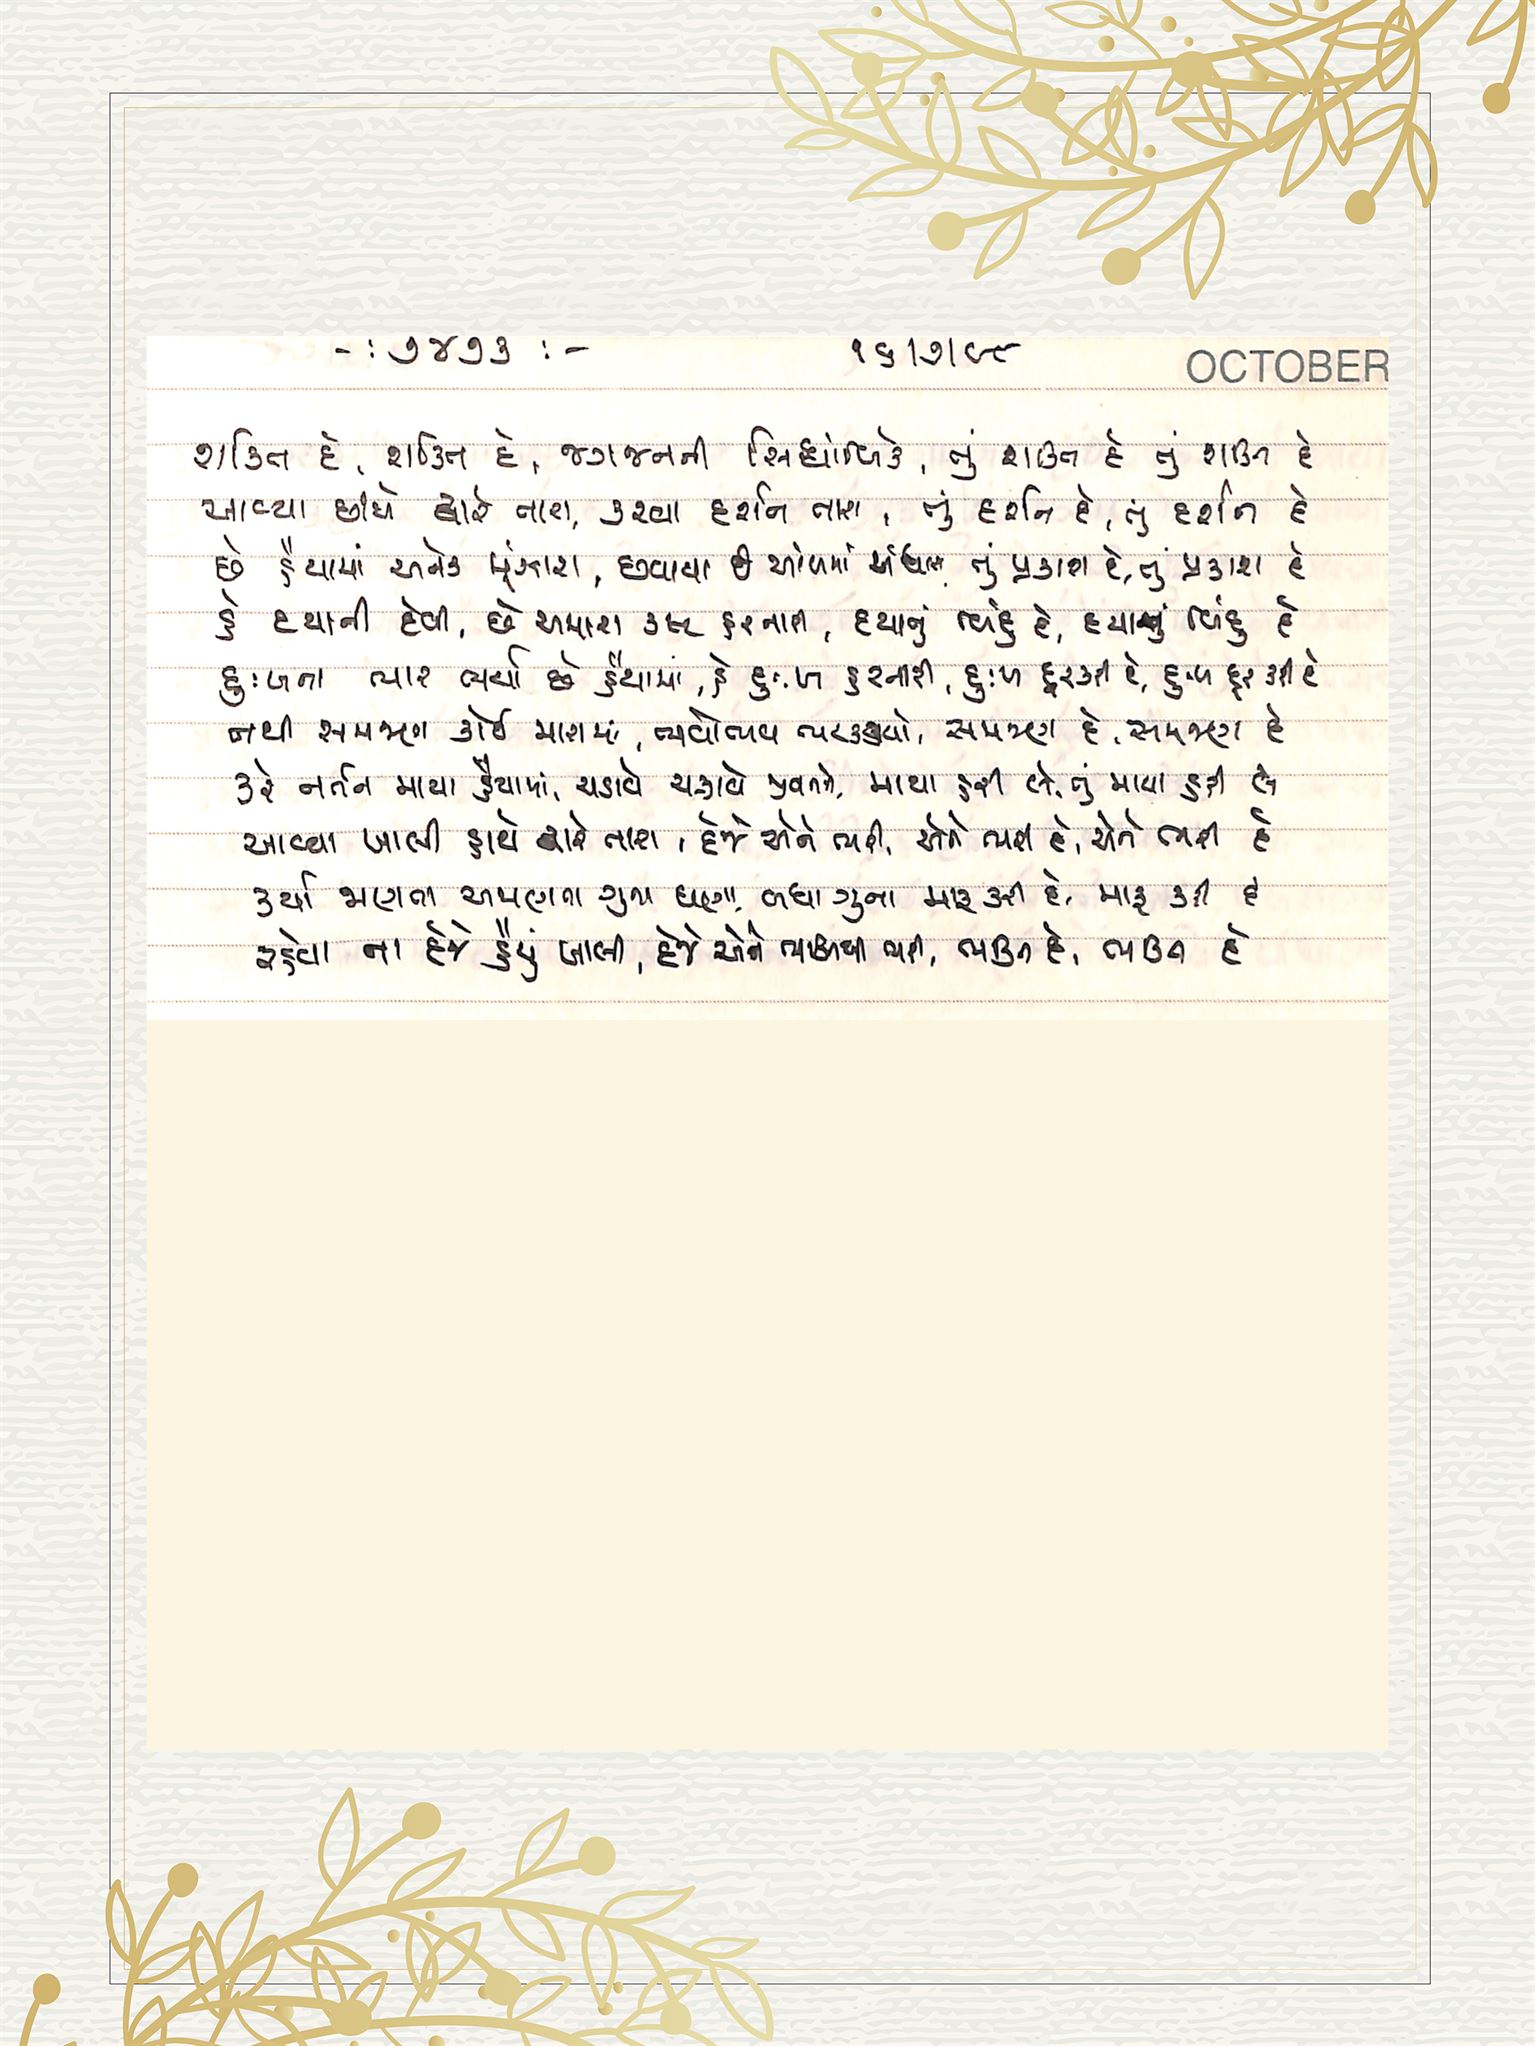 -: ૭૪૭૩ :- ૧૬/૭/૯૮
OCTOBER
શક્તિ દે, શક્તિ દે, જગજનની સિધ્ધાંબિકે, તું શક્તિ દે તું શક્તિ દે
આવ્યા છીયે દ્વારે તારા, કરવા દર્શન તારા, તું દર્શન દે, તું દર્શન દે
છે હૈયામાં અનેક મૂંઝારા, છવાયા છે આંખમાં અંધારા તું પ્રકાશ દે, તું પ્રકાશ દે
હે દયાની દેવી, છે અમારા કષ્ટ હરનારી, દયાનું બિંદુ દે, દયાનું બિંદુ દે
દુઃખના ભાર ભર્યા છે હૈયામાં, હે દુઃખ હરનારી, દુઃખ દૂર કરી દે, દુઃખ દૂર કરી દે
નથી સમજણ કોઈ મારામાં, ભવોભવ ભટક્યો, સમજણ દે, સમજણ દે
કરે નર્તન માયા હૈયામાં, ચડાવે ચક્રાવે મનને, માયા હરી લે, તું માયા હરી લે
આવ્યા ખાલી હાથે દ્વારે તારા, દેજે એને ભરી, એને ભરી દે, એને ભરી દે
કર્યા જાણતા અજાણતા ગુના ઘણા, બધા ગુના માફ કરી દે, માફ કરી દે
રહેવા ના દેજે હૈયું ખાલી, દેજે એને ભક્તિથી ભરી, ભક્તિ દે, ભક્તિ દે